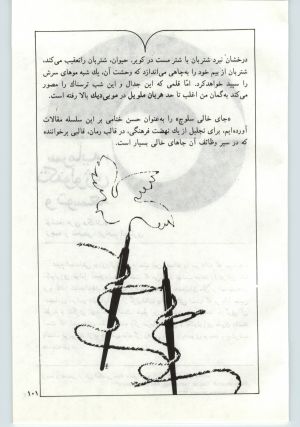 درخشان نبرد شتربان با شتر مست در کویر. حیوان، شتربان راتعقیب می‌کند،
شتربان از بیم خود را به‌چاهی می‌اندازد که وحشت آن، یك شبه موهای سرش
را سپید خواهدکرد. امّا قلمی که این جدال و این شب ترسناك را مصور
می‌کند به‌گمان من اغلب تا حد هرمان ملویل در موبی‌دیك بالا رفته است.
«جای خالی سلوچ» را به‌عنوان حسن ختامی بر این سلسله مقالات
آورده‌ایم. برای تجلیل از یك نهضت فرهنگی، در قالب رمان. یرای برخواننده
که در سیر وظائف آن جاهای خالی بسیار است.
۱۰۱